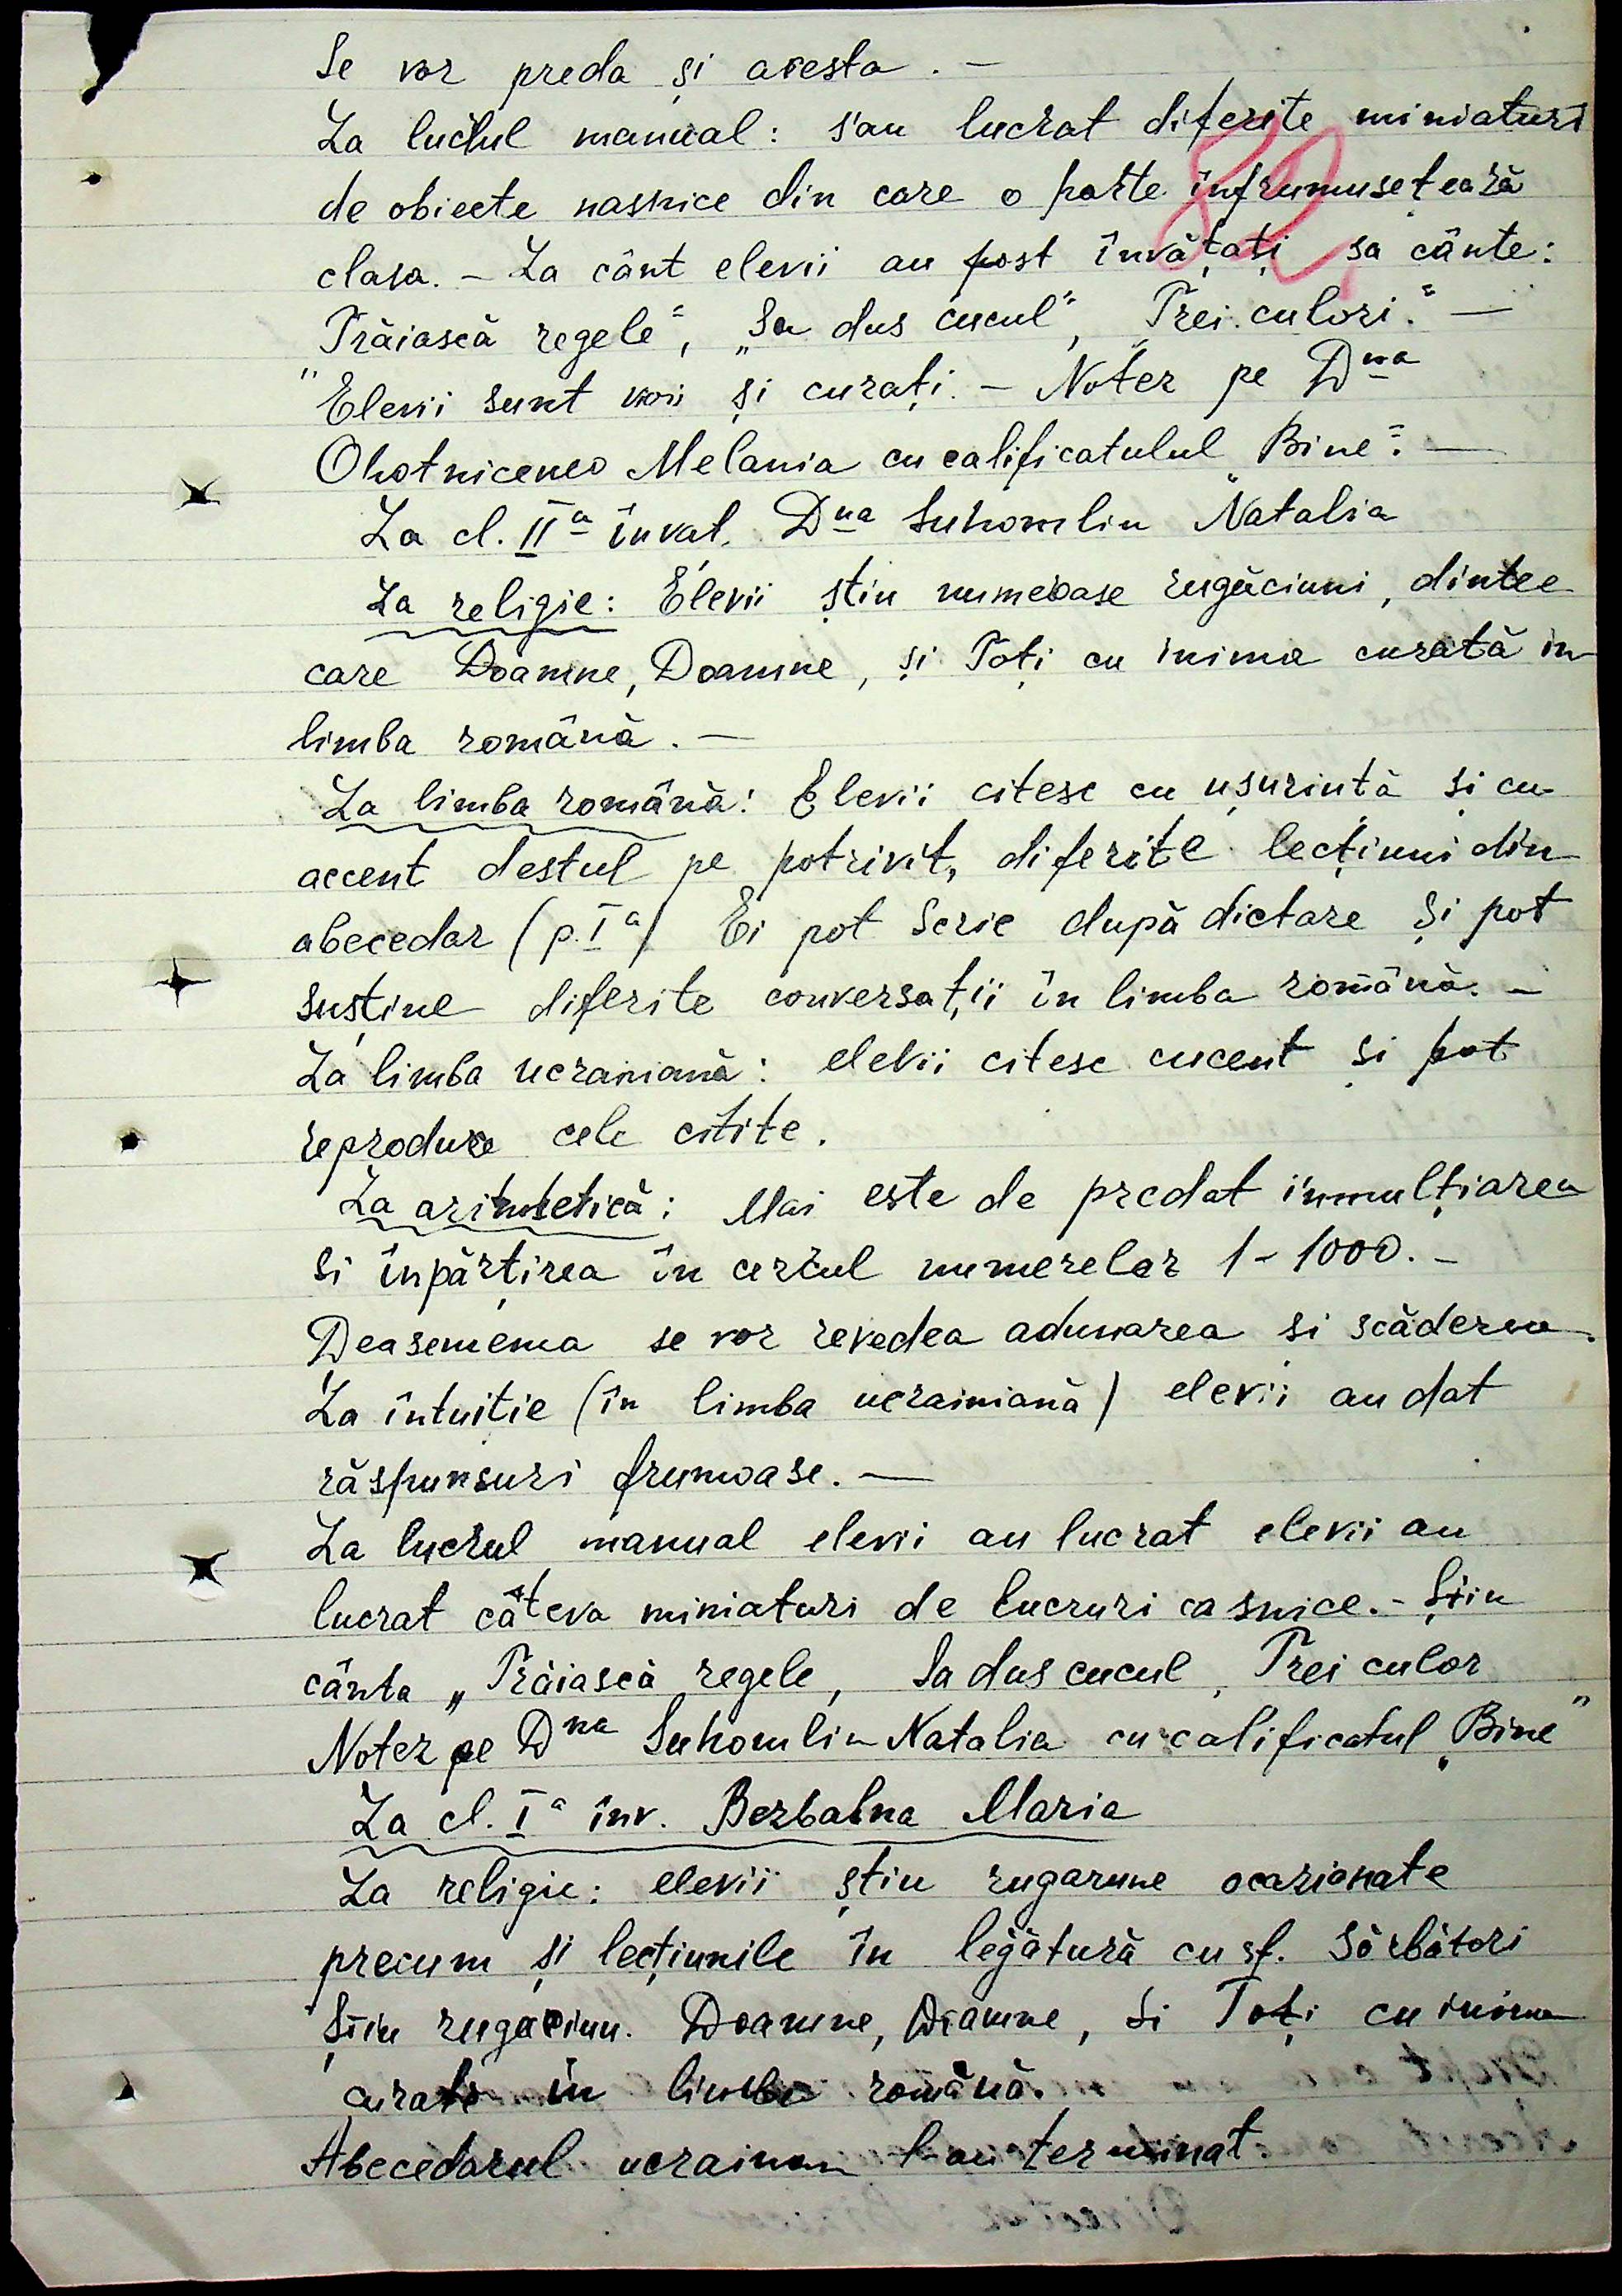 Se vor preda și acesta. —
La lucrul manual: s'au lucrat diferite miniaturi
de obiecte casnice din care o parte înfrumusețează
clasa. – La cânt elevii au fost învățați sa cânte:
„Trăiască regele", „Sa dus cucul", „Trei culori". —
Elevii sunt vioi și curați. – Notez pe Dna
Ohotnicenco Melania cu calificatulul „Bine". —
La cl. IIa învat. Dna Suhomlin Natalia
La religie: Elevii știu numeroase rugăciuni, dintre
care Doamne, Doamne, și Toți cu inima curată in
limba română. —
La limba română: Elevii citesc cu ușurință și cu
accent destul pe potrivit, diferite lecțiuni din
abecedar (p. Ia) Ei pot scrie după dictare și pot
susține diferite conversații în limba română. –
La limba ucrainiană: elevii citesc cucent și pot
reproduce cele citite.
La aritmetică: Mai este de predat inmulțiarea
si înpărțirea în cercul numerelor 1-1000. –
Deasemenea se vor revedea adunarea si scăderea.
La întuiție (în limba ucrainiană) elevii au dat
răspunsuri frumoase. —
La lucrul manual elevii au lucrat elevii au
lucrat câteva miniaturi de lucruri casnice. – Știu
cânta „Trăiască regele, Sa dus cucul, Trei culor
Notez pe Dna Suhomlin Natalia cu calificatul „Bine"
La cl. Ia înv. Bezbalna Maria
La religie: elevii știu rugarune ocazionate
precum și lecțiunile în legătură cu sf. Sărbători
Știu rugaciuu. Doamne, Doamne, si Toți cu inima
curată in limba română.
Abecedarul ucrainan l-au terminat.
80